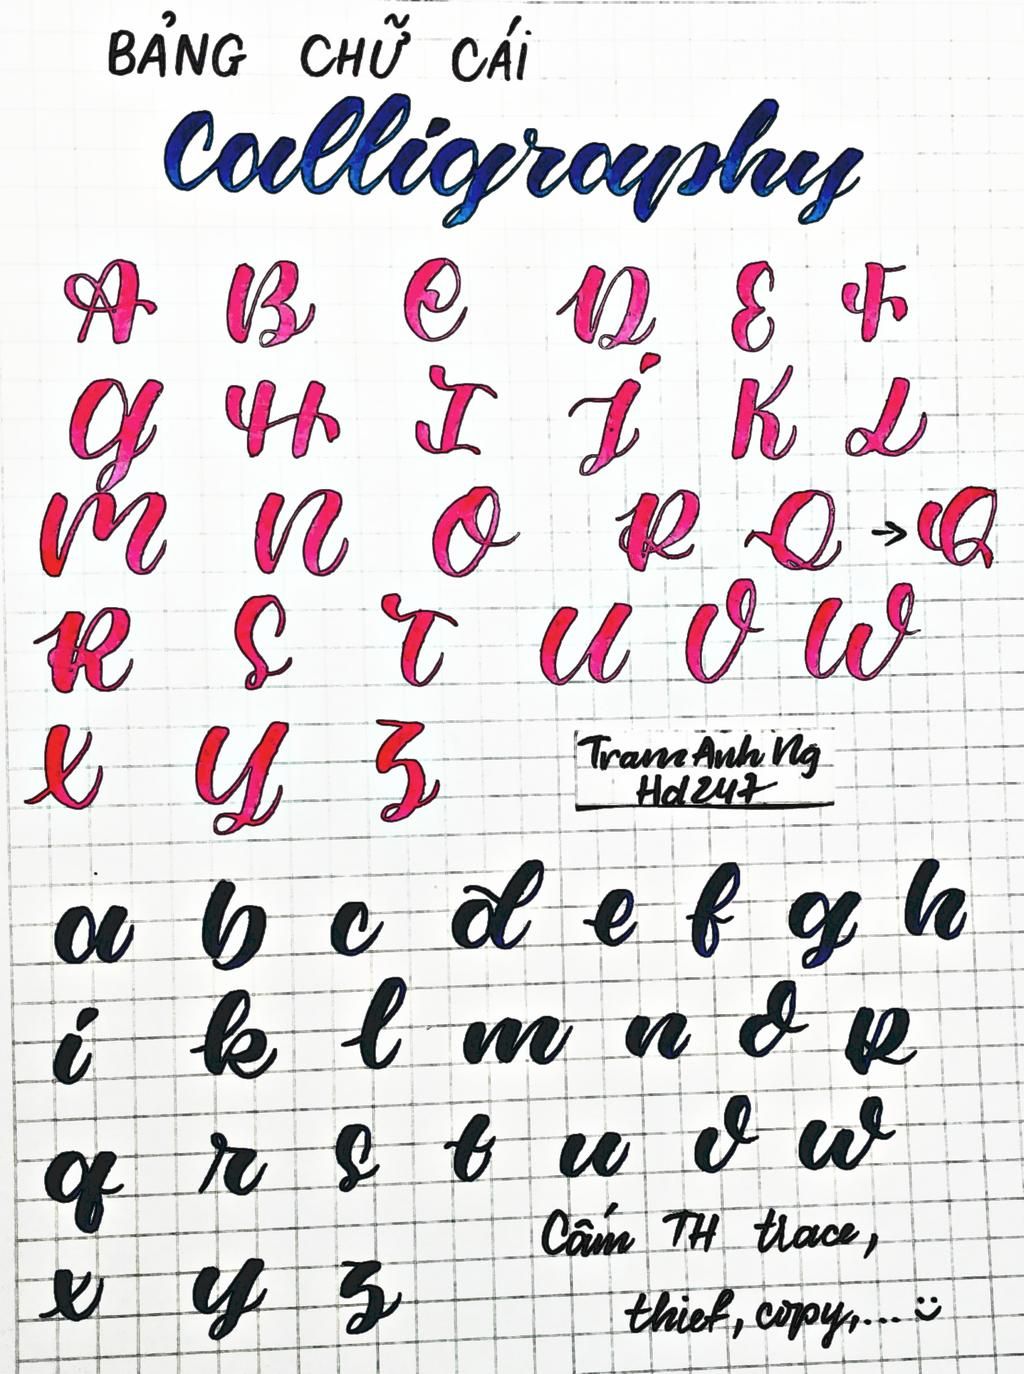 BẢNG CHỮ CÁI
Calligraphy
A B C D E F
G H I J K L
M N O P Q → Q
R S T U V W
X Y Z
Tram Anh Ng
Hd247
a b c d e f g h
i k l m n o p
q r s t u v w
x y z
Cấm TH trace,
thief, copy,... :)